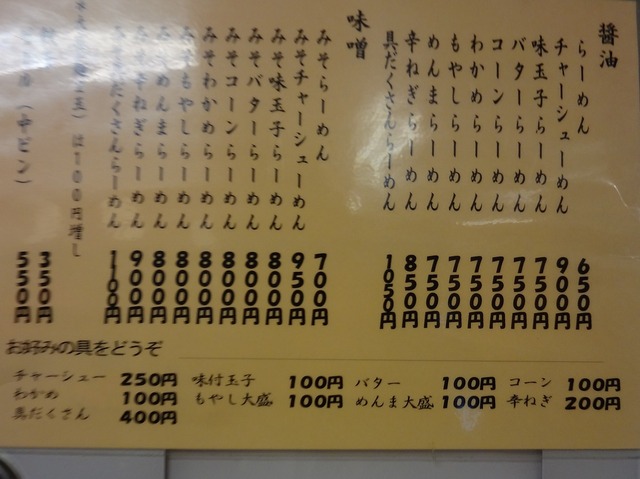 醤油
らーめん 650円
チャーシューめん 900円
味玉子らーめん 750円
バターらーめん 750円
コーンらーめん 750円
わかめらーめん 750円
もやしらーめん 750円
めんまらーめん 750円
辛ねぎらーめん 850円
具だくさんらーめん 1050円
味噌
みそらーめん 700円
みそチャーシューめん 950円
みそ味玉子らーめん 800円
みそバターらーめん 800円
みそコーンらーめん 800円
みそわかめらーめん 800円
みそもやしらーめん 800円
みそめんまらーめん 800円
みそ辛ねぎらーめん 900円
みそ具だくさんらーめん 1100円
は100円増し
350円
(中ビン) 550円
お好みの具をどうぞ
チャーシュー 250円 味付玉子 100円 バター 100円 コーン 100円
わかめ 100円 もやし大盛 100円 めんま大盛 100円 辛ねぎ 200円
具だくさん 400円